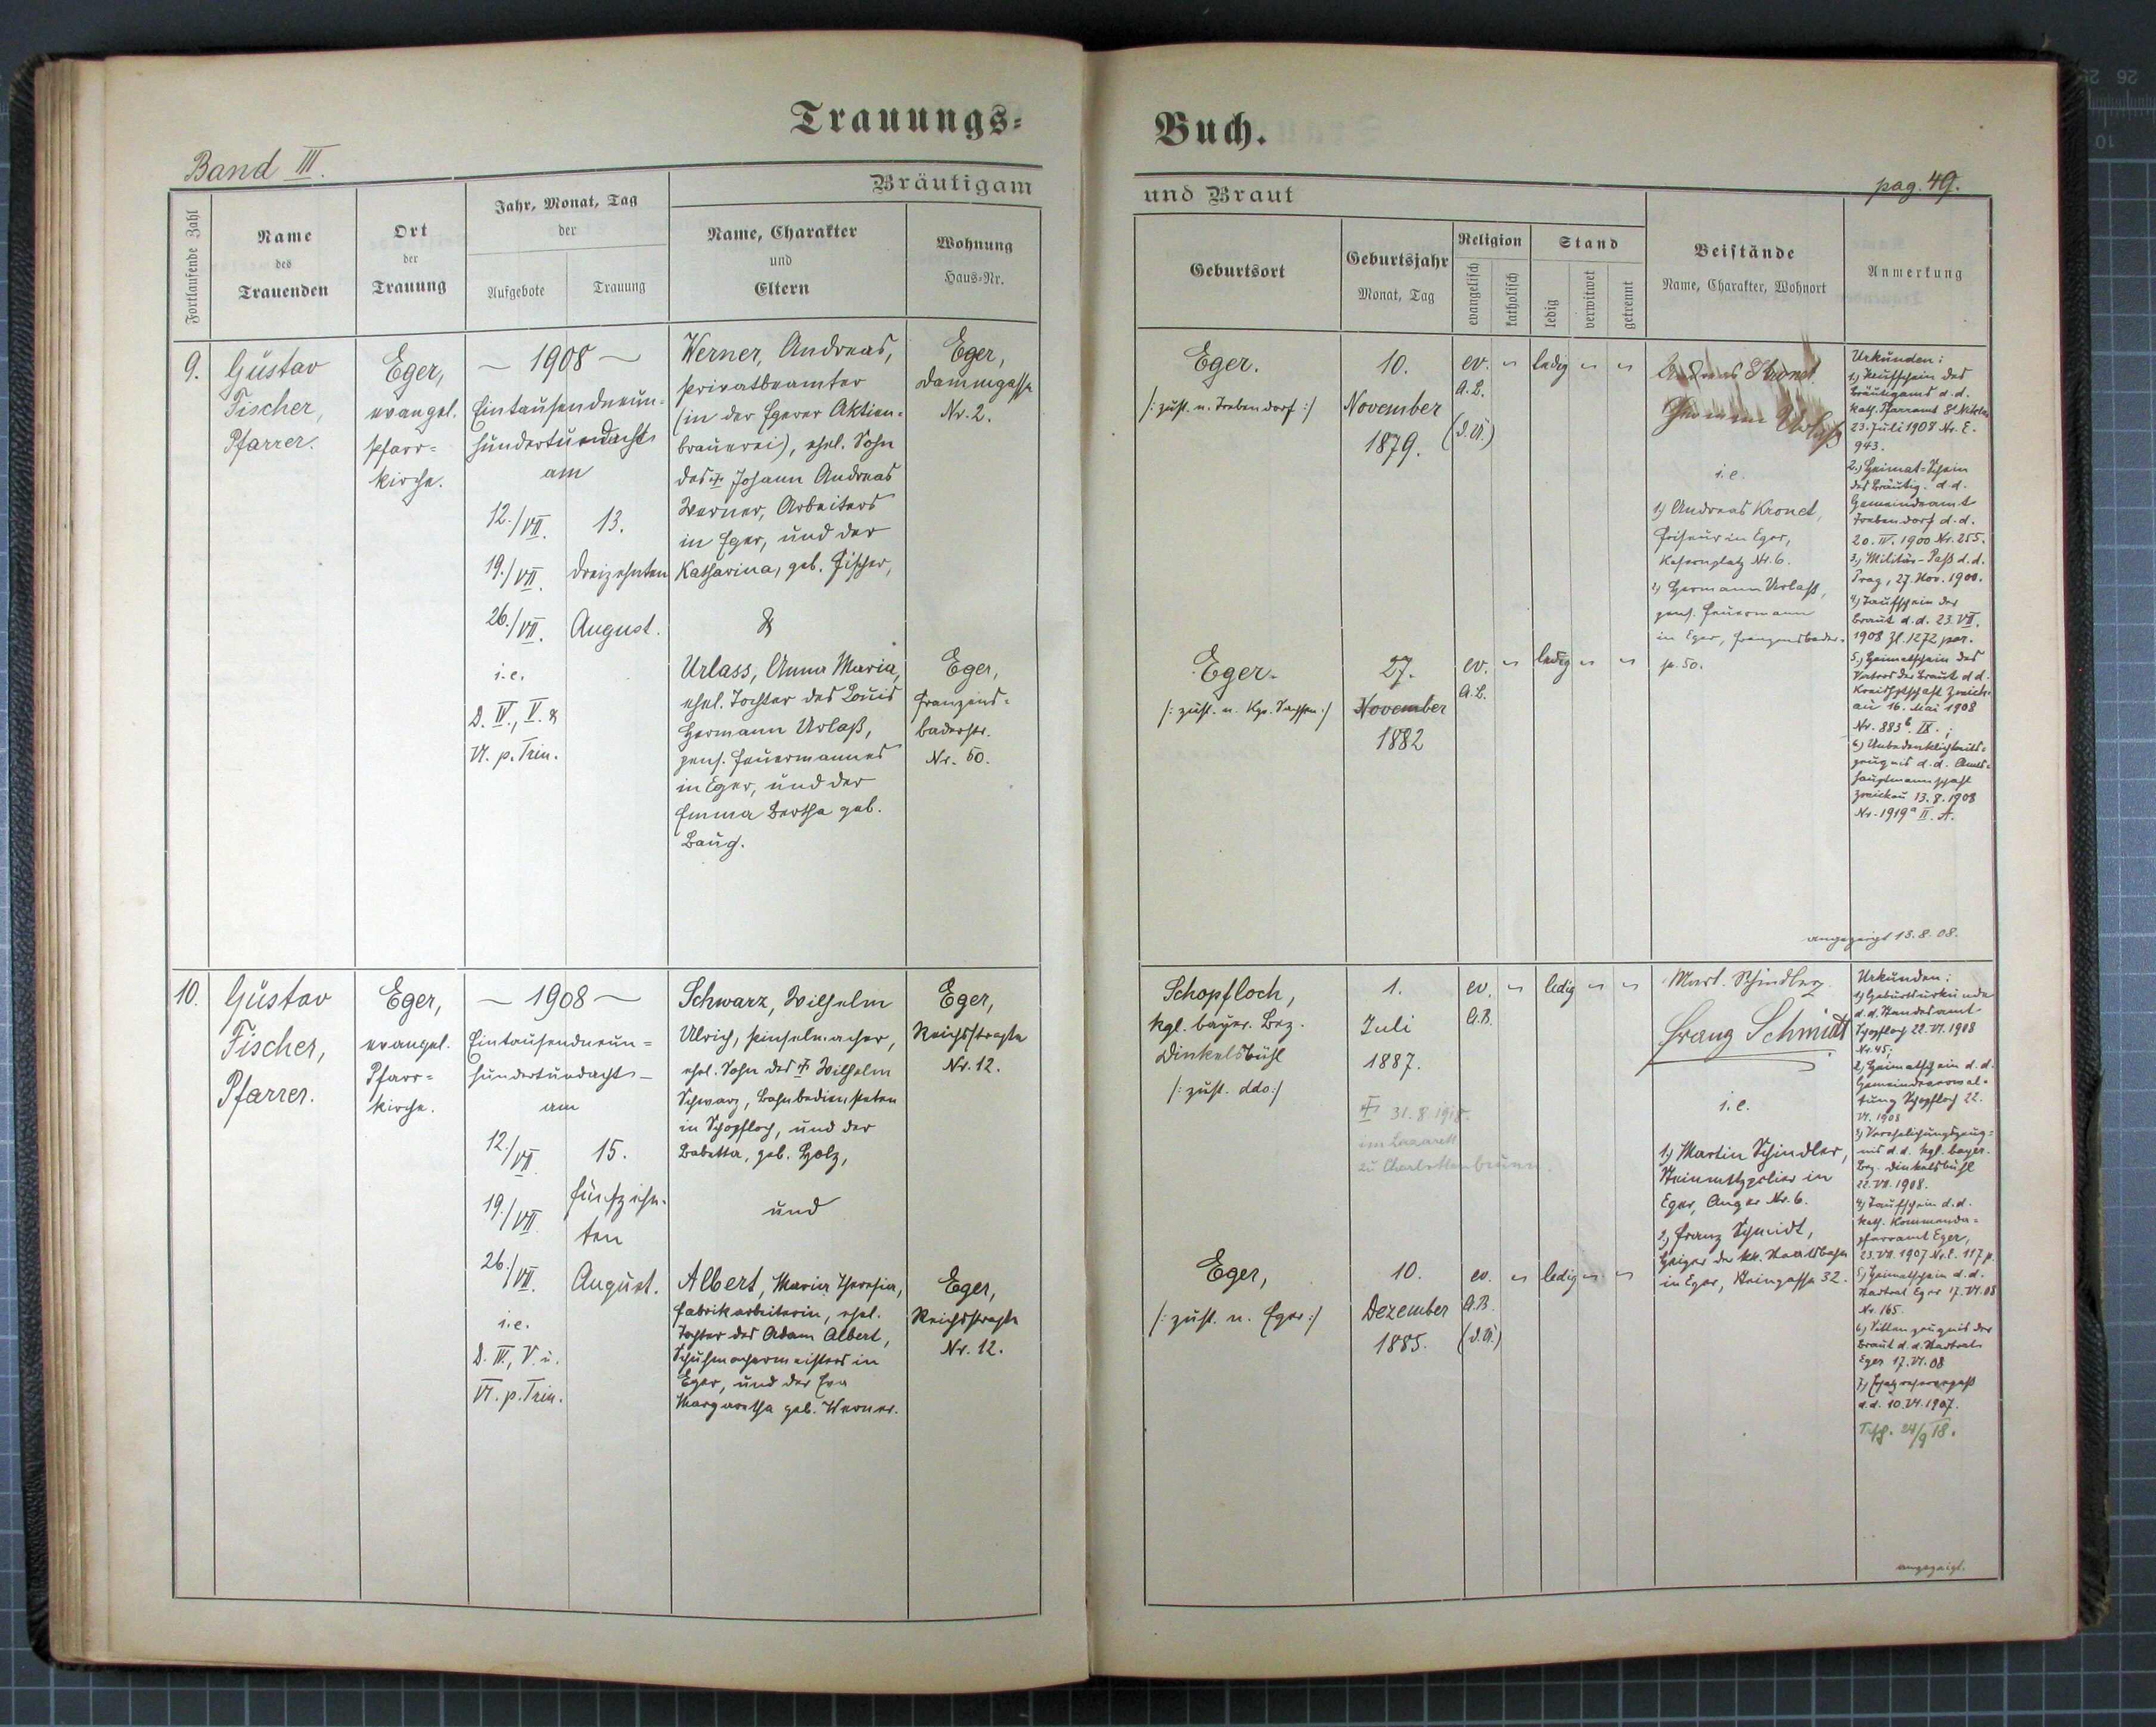 Trauungs-
Band III.
Fortlaufende Zahl
Name
des
Trauenden
Ort
der
Trauung
Jahr, Monat, Tag
der
Aufgebote
Trauung
Bräutigam
Name, Charakter
und
Eltern
Wohnung
Haus-Nr.
9.
Gustav
Fischer,
Pfarrer.
Eger,
evangel.
Pfarr-
kirche.
— 1908 —
Eintausendneun-
hundertundacht
am
12./VII.
19./VII.
26./VII.
i.e.
D. IV., V. &
VI. p. Trin.
13.
dreizehnten
August.
Werner, Andreas,
Privatbeamter
(in der Egerer Aktien-
brauerei), ehel. Sohn
des Johann Andreas
Werner, Arbeiters
in Eger, und der
Katharina, geb. Fischer,
&
Urlass, Anna Maria,
ehel. Tochter des Louis
Hermann Urlaß,
pens. Feuermannes
in Eger, und der
Emma Bertha geb.
Baug.
Eger,
Dammgasse
Nr. 2.
Eger,
Franzens-
baderstr.
Nr. 50.
10.
Gustav
Fischer,
Pfarrer.
Eger,
evangel.
Pfarr-
kirche.
— 1908 —
Eintausendneun-
hundertundacht
am
12./VII.
19./VII.
26./VII.
i.e.
D. IV., V. u.
VI. p. Trin.
15.
fünfzehn-
ten
August.
Schwarz, Wilhelm
Ulrich, Pinselmacher,
ehel. Sohn des Wilhelm
Schwarz, Bahnbediensteten
in Schopfloch, und der
Babetta, geb. Holz,
und
Albert, Maria Theresia,
Fabrikarbeiterin, ehel.
Tochter des Adam Albert,
Schuhmachermeisters in
Eger, und der Eva
Margaretha geb. Werner.
Eger,
Reichsstraße
Nr. 12.
Eger,
Reichsstraße
Nr. 12.
Buch.
pag. 49.
und Braut
Geburtsort
Geburtsjahr
Monat, Tag
Religion
evangelisch
katholisch
Stand
ledig
verwitwet
getrennt
Beistände
Name, Charakter, Wohnort
Anmerkung
Eger.
/: zust. n. Trebendorf :/
10.
November
1879.
ev.
A.B.
(d.Ü.)
ledig
Andreas Kronet
Hermann Urlaß
i.e.
1) Andreas Kronet,
Friseur in Eger,
Kasernplatz Nr. 6.
2) Hermann Urlaß,
pens. Feuermann
in Eger, Franzensbader-
st. 50.
Eger.
/: zust. n. Kgr. Sachsen :/
27.
November
1882
ev.
A.B.
ledig
Urkunden:
1.) Taufschein des
Bräutigams d.d.
kath. Pfarramt St. Niklas
23. Juli 1908 Nr. E.
943.
2.) Heimat-Schein
des Bräutig. d.d.
Gemeindeamt
Trebendorf d.d.
20. IV. 1900 Nr. 255.
3.) Militär-Paß d.d.
Prag, 27. Nov. 1900.
4.) Taufschein der
Braut d.d. 23. VII.
1908 Zl. 1272 par.
5.) Heimatschein des
Vaters der Braut d.d.
Kreishptschaft Zwick-
au 16. Mai 1908
Nr. 883b. IX.;
6.) Unbedenklichkeits-
zeugnis d.d. Amts-
hauptmannschaft
Zwickau 13.8.1908
Nr. 1919a II. A.
angezeigt 13.8.08.
Schopfloch,
kgl. bayer. Bez.
Dinkelsbühl
/: zust. ddo :/
1.
Juli
1887.
31.8.1918.
im Lazarett
zu Charlottenbrunn.
ev.
A.B.
ledig
Mart. Schindler
Franz Schmidt
i.e.
1.) Martin Schindler,
Steinmetzpolier in
Eger, Anger Nr. 6.
2.) Franz Schmidt,
Heizer der kk. Staatsbahn
in Eger, Steingasse 32.
Eger,
/: zust. n. Eger :/
10.
Dezember
1885.
ev.
A.B.
(d.Ü.)
ledig
Urkunden:
1.) Geburtsurkunde
d.d. Standesamt
Schopfloch 22. VI. 1908
Nr. 45;
2.) Heimatschein d.d.
Gemeindeverwal-
tung Schopfloch 22.
VI. 1908
3.) Verehelichungszeug-
nis d.d. kgl. bayer.
Bez. Dinkelsbühl
22. VII. 1908.
4.) Taufschein d.d.
kath. Kommenda-
pfarramt Eger,
23. VII. 1907 Nr. E. 117 p.
5.) Heimatschein d.d.
Stadtrat Eger 17. VI. 08
Nr. 165.
6.) Sittenzeugnis der
Braut d.d. Stadtrat
Eger 17. VI. 08
7.) Ersatzreservepaß
d.d. 10. VI. 1907.
24/9 18.
angezeigt.